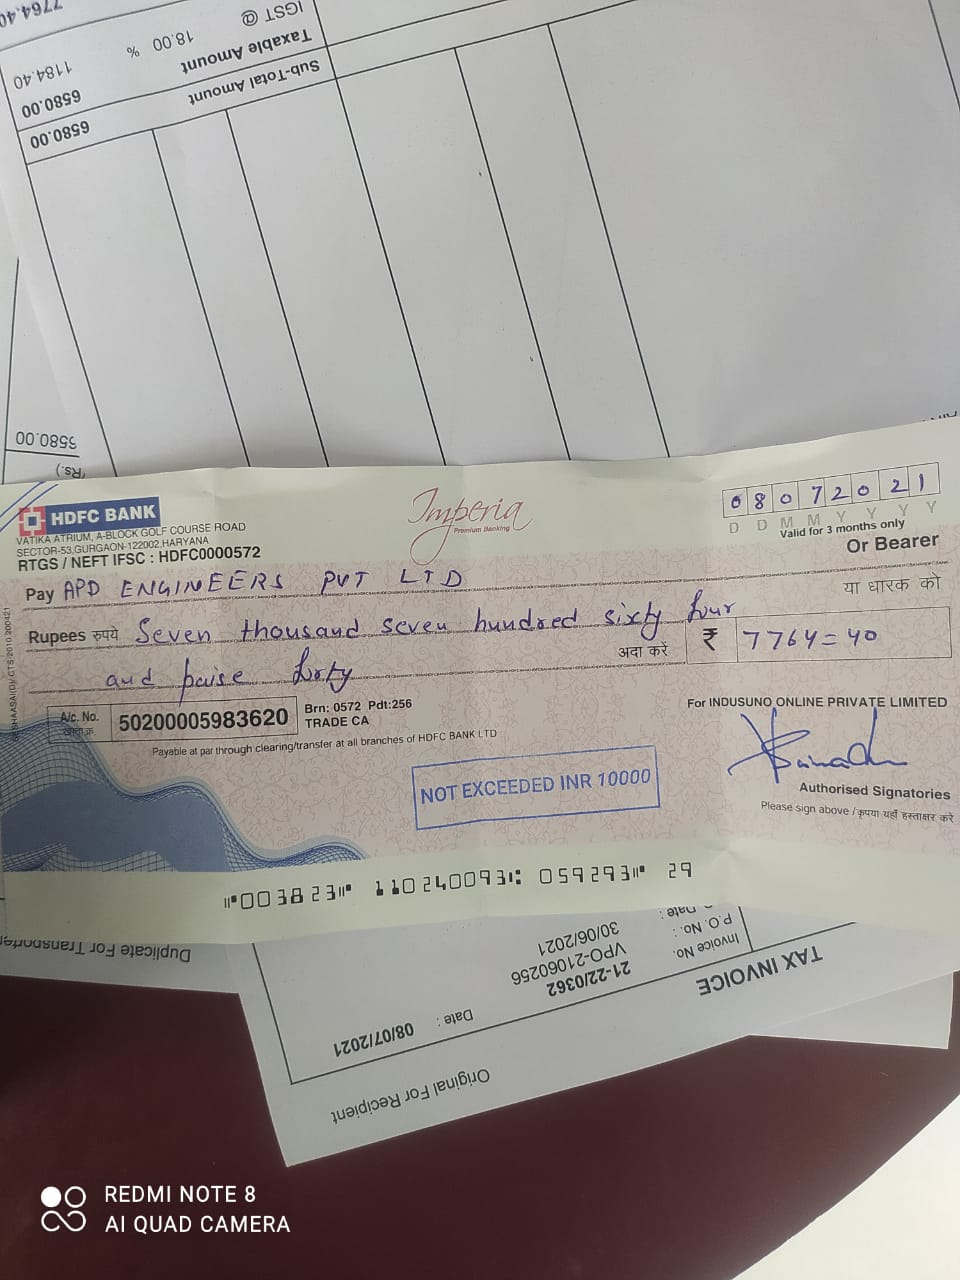 7764.40
IGST @ 18.00 % 1184.40
Taxable Amount 6580.00
Sub-Total Amount 6580.00
(Rs.)
HDFC BANK
VATIKA ATRIUM, A-BLOCK GOLF COURSE ROAD
SECTOR-53,GURGAON-122002,HARYANA
RTGS / NEFT IFSC : HDFC0000572
Imperia
Premium Banking
0 8 0 7 2 0 2 1
D D M M Y Y Y Y
Valid for 3 months only
Or Bearer
Pay APD ENGINEERS PVT LTD
या धारक को
Rupees रुपये Seven thousand seven hundred sixty four
and paise forty
अदा करें ₹ 7764=40
A/c. No. 50200005983620
खाता क्र.
Brn: 0572 Pdt:256
TRADE CA
Payable at par through clearing/transfer at all branches of HDFC BANK LTD
For INDUSUNO ONLINE PRIVATE LIMITED
NOT EXCEEDED INR 10000
Authorised Signatories
Please sign above / कृपया यहाँ हस्ताक्षर करें
⑈003823⑈ 110240093⑆ 059293⑈ 29
Duplicate For Transporter
Original For Recipient
TAX INVOICE
Invoice No. 21-22/0362 Date : 08/07/2021
P.O. No. : VPO-21060256
Date : 30/06/2021
REDMI NOTE 8
AI QUAD CAMERA